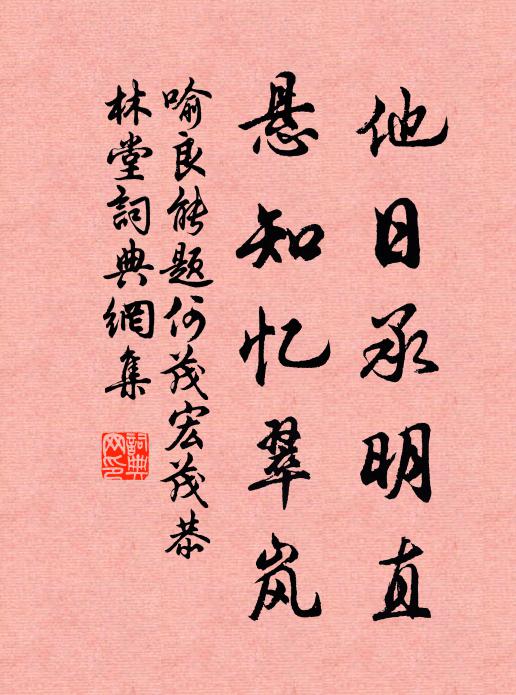 他日承明直
悬知忆翠岚
喻良能题何茂宏茂恭
林堂詞典網集
詞典網印